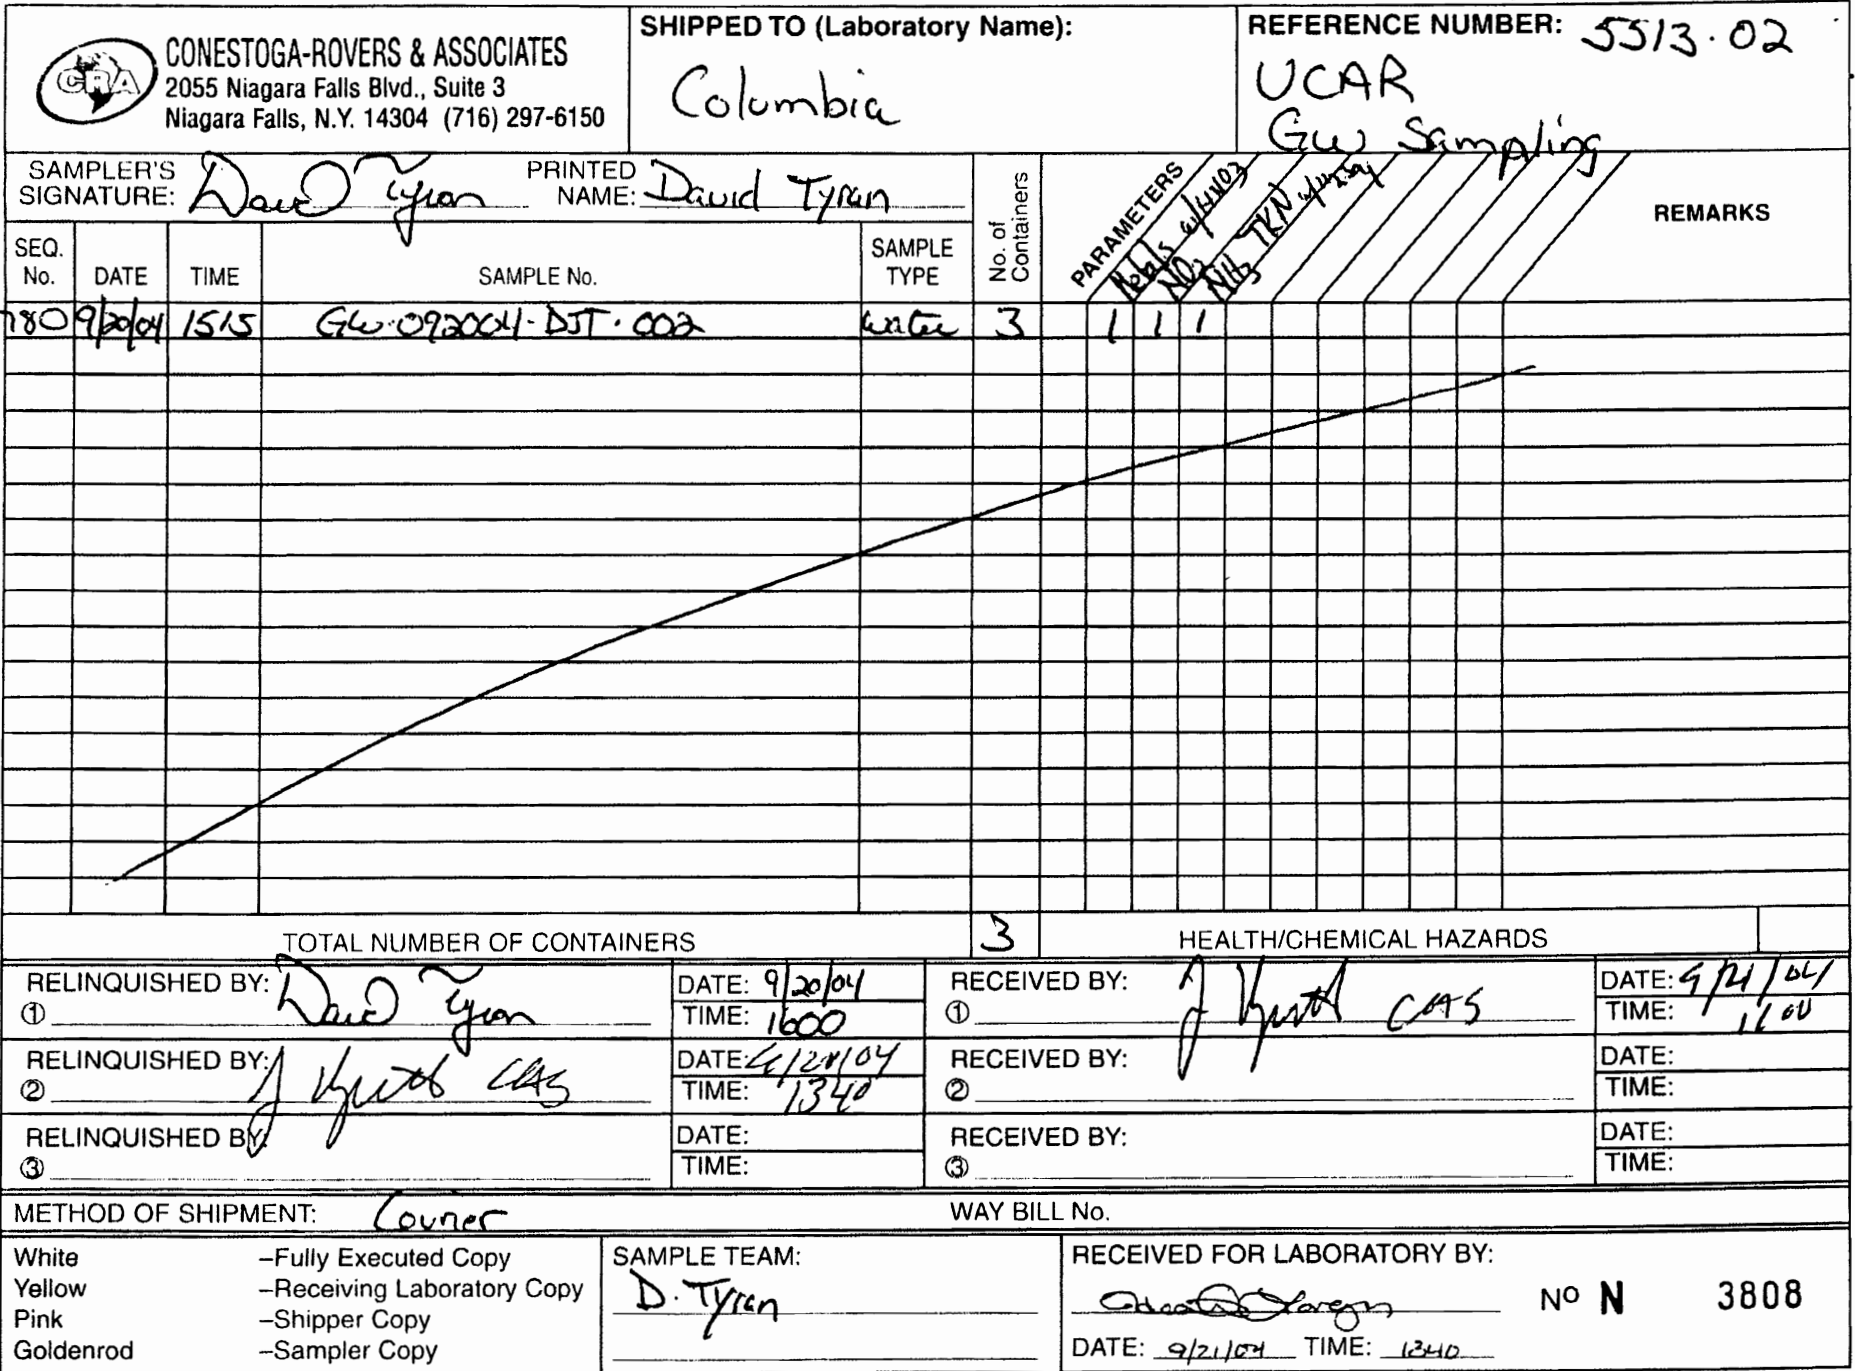 CRA
CONESTOGA-ROVERS & ASSOCIATES
2055 Niagara Falls Blvd., Suite 3
Niagara Falls, N.Y. 14304 (716) 297-6150
SHIPPED TO (Laboratory Name):
Columbia
REFERENCE NUMBER: 5513.02
UCAR
GW Sampling
SAMPLER'S SIGNATURE: David Tyran
PRINTED NAME: David Tyran
SEQ. No. DATE TIME SAMPLE No. SAMPLE TYPE No. of Containers PARAMETERS REMARKS
Metals w/HNO3
NO3
NH3 TKN w/H2SO4
780 9/20/04 1515 GW-092004-DJT-002 water 3 1 1 1
TOTAL NUMBER OF CONTAINERS 3 HEALTH/CHEMICAL HAZARDS
RELINQUISHED BY: ① David Tyran
DATE: 9/20/04
TIME: 1600
RECEIVED BY: ① CAS
DATE: 9/21/04
TIME: 1100
RELINQUISHED BY: ② CAS
DATE: /04
TIME: 1340
RECEIVED BY: ②
DATE:
TIME:
RELINQUISHED BY: ③
DATE:
TIME:
RECEIVED BY: ③
DATE:
TIME:
METHOD OF SHIPMENT: Courier
WAY BILL No.
White –Fully Executed Copy
Yellow –Receiving Laboratory Copy
Pink –Shipper Copy
Goldenrod –Sampler Copy
SAMPLE TEAM:
D. Tyran
RECEIVED FOR LABORATORY BY:
DATE: 9/21/04 TIME: 1340
No N 3808